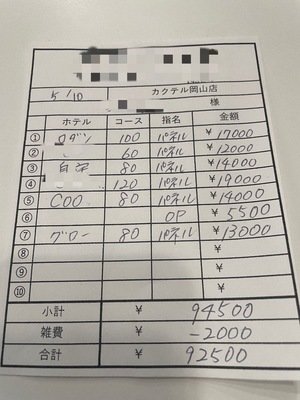 5/10 カクテル岡山店
様
ホテル コース 指名 金額
① ロダン 100 パネル ¥17000
② 60 パネル ¥12000
③ 自宅 80 パネル ¥14000
④ 120 パネル ¥19000
⑤ COO 80 パネル ¥14000
⑥ OP ¥5500
⑦ グロー 80 パネル ¥13000
⑧ ¥
⑨ ¥
⑩ ¥
小計 ¥ 94500
雑費 ¥ -2000
合計 ¥ 92500